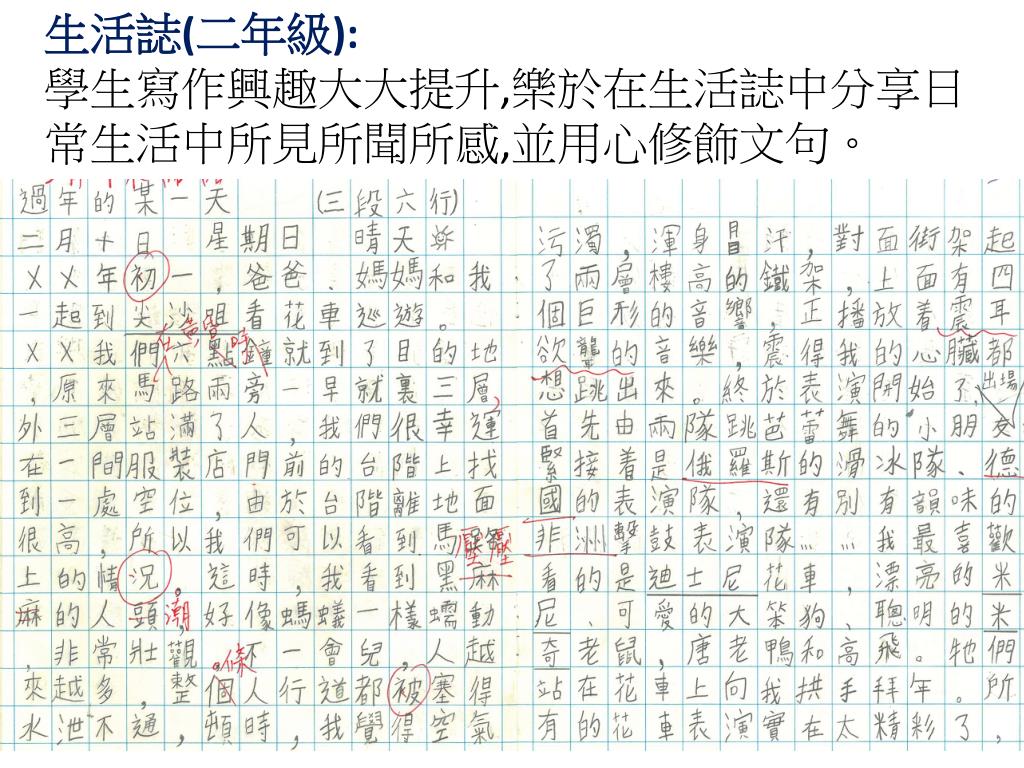 生活誌(二年級):
學生寫作興趣大大提升,樂於在生活誌中分享日
常生活中所見所聞所感,並用心修飾文句。
過年的某一天 (三段六行)
二月十日 星期日 晴天
XX年初一,爸爸、媽媽和我
一起到尖沙咀看花車巡遊。
XX我們六點鐘就到了目的地
在黃昏時
,原來馬路兩旁一早就裏三層,
外三層站滿了人,我們很幸運
在一間服裝店門前的台階上找
到一處空位,由於台階離地面
很高,所以我們可以看到馬路
上的情況。這時,我看到黑麻
壓壓
麻的人頭潮好像螞蟻一樣蠕動
,非常壯觀。不一會兒,人越
條
來越多,整個人行道都被塞得
水泄不通,頓時,我覺得空氣
污濁,渾身冒汗,對面街架起
了兩層樓高的鐵架,上面有四
個巨形的音響,正播放着震耳
欲聾的音樂,震得我的心臟都
想跳出來。終於表演開始了,
出場
首先由兩隊跳芭蕾舞的小朋友
緊接着是俄羅斯的滑冰隊、德
國的表演隊,還有別有韻味的
非洲擊鼓表演隊……我最喜歡
看的是迪士尼花車,漂亮的米
尼、可愛的大笨狗、聰明的米
奇老鼠,唐老鴨和高飛。牠們
站在花車上向我拱手拜年。所
有的花車表演實在太精彩了,